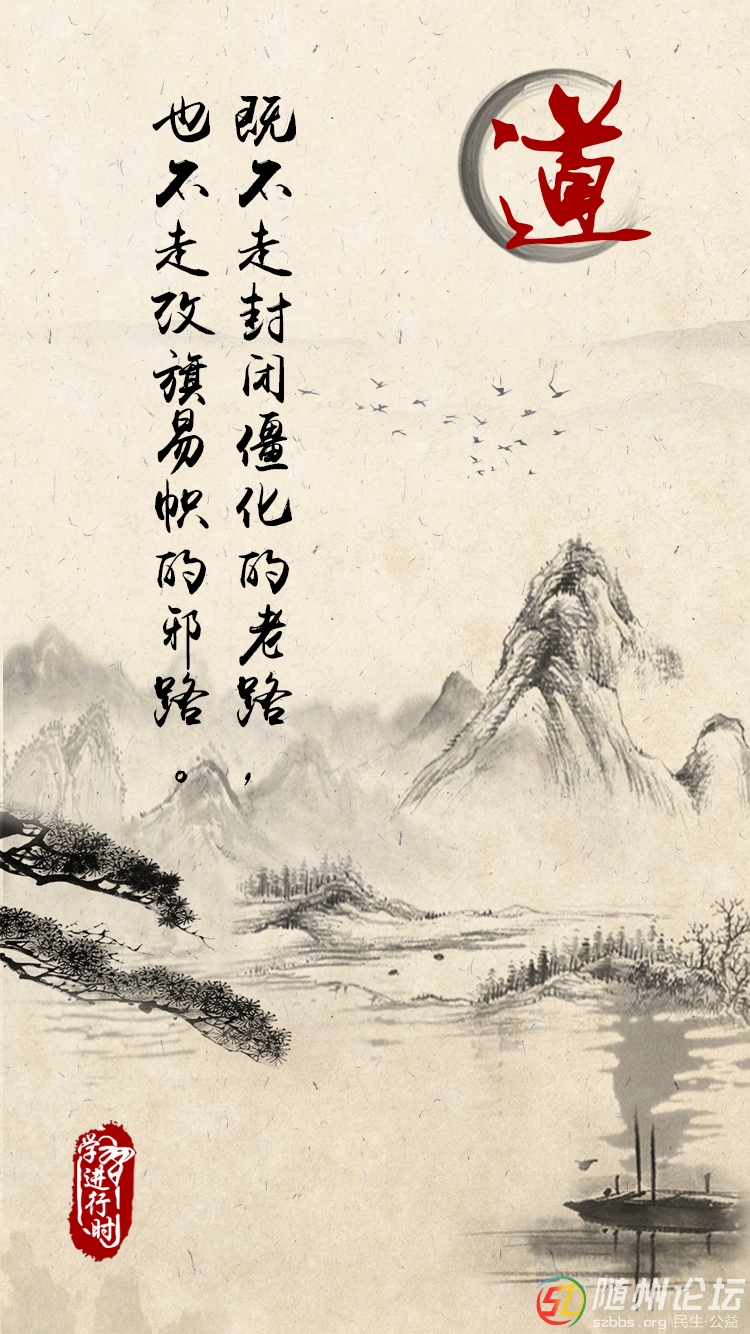 道
既不走封闭僵化的老路，
也不走改旗易帜的邪路。
学习进行时
随州论坛
szbbs.org 民生·公益